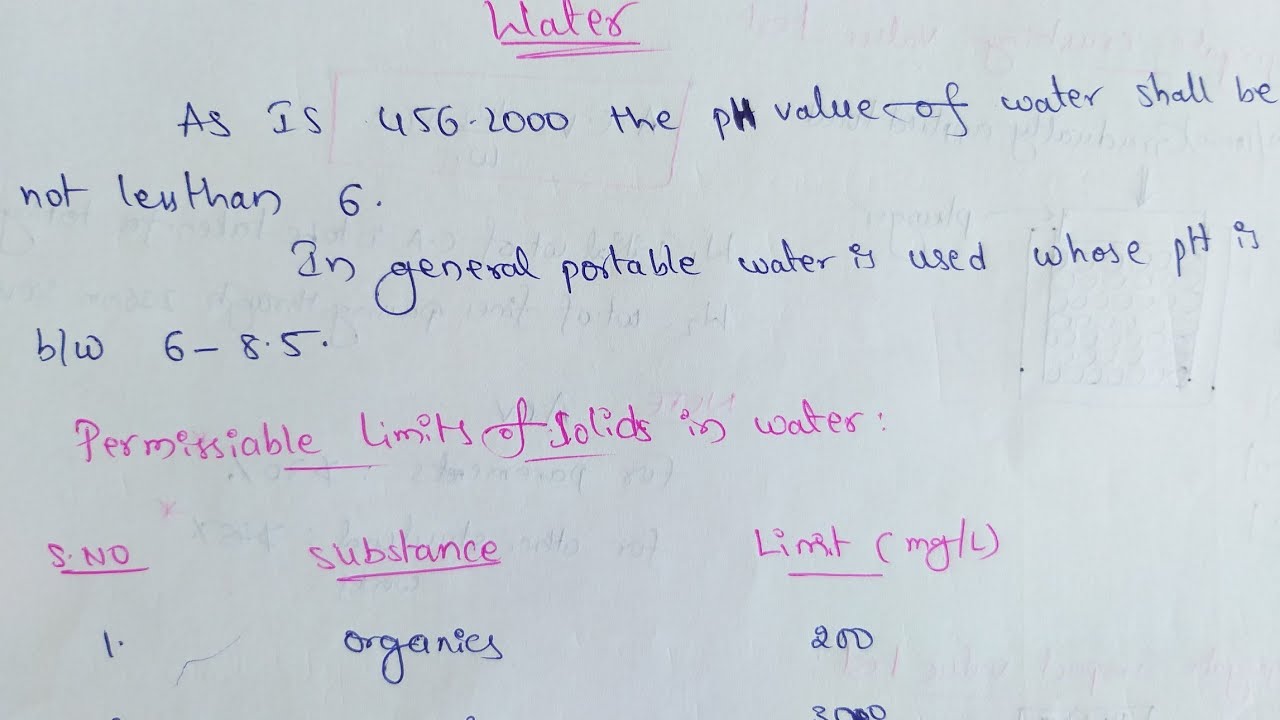 Water
As IS 456.2000 the pH value of water shall be
not lessthan 6.
In general portable water is used whose pH is
b/w 6 - 8.5.
Permissiable limits of solids in water:
S.NO substance Limit (mg/L)
1. organics 200
3000